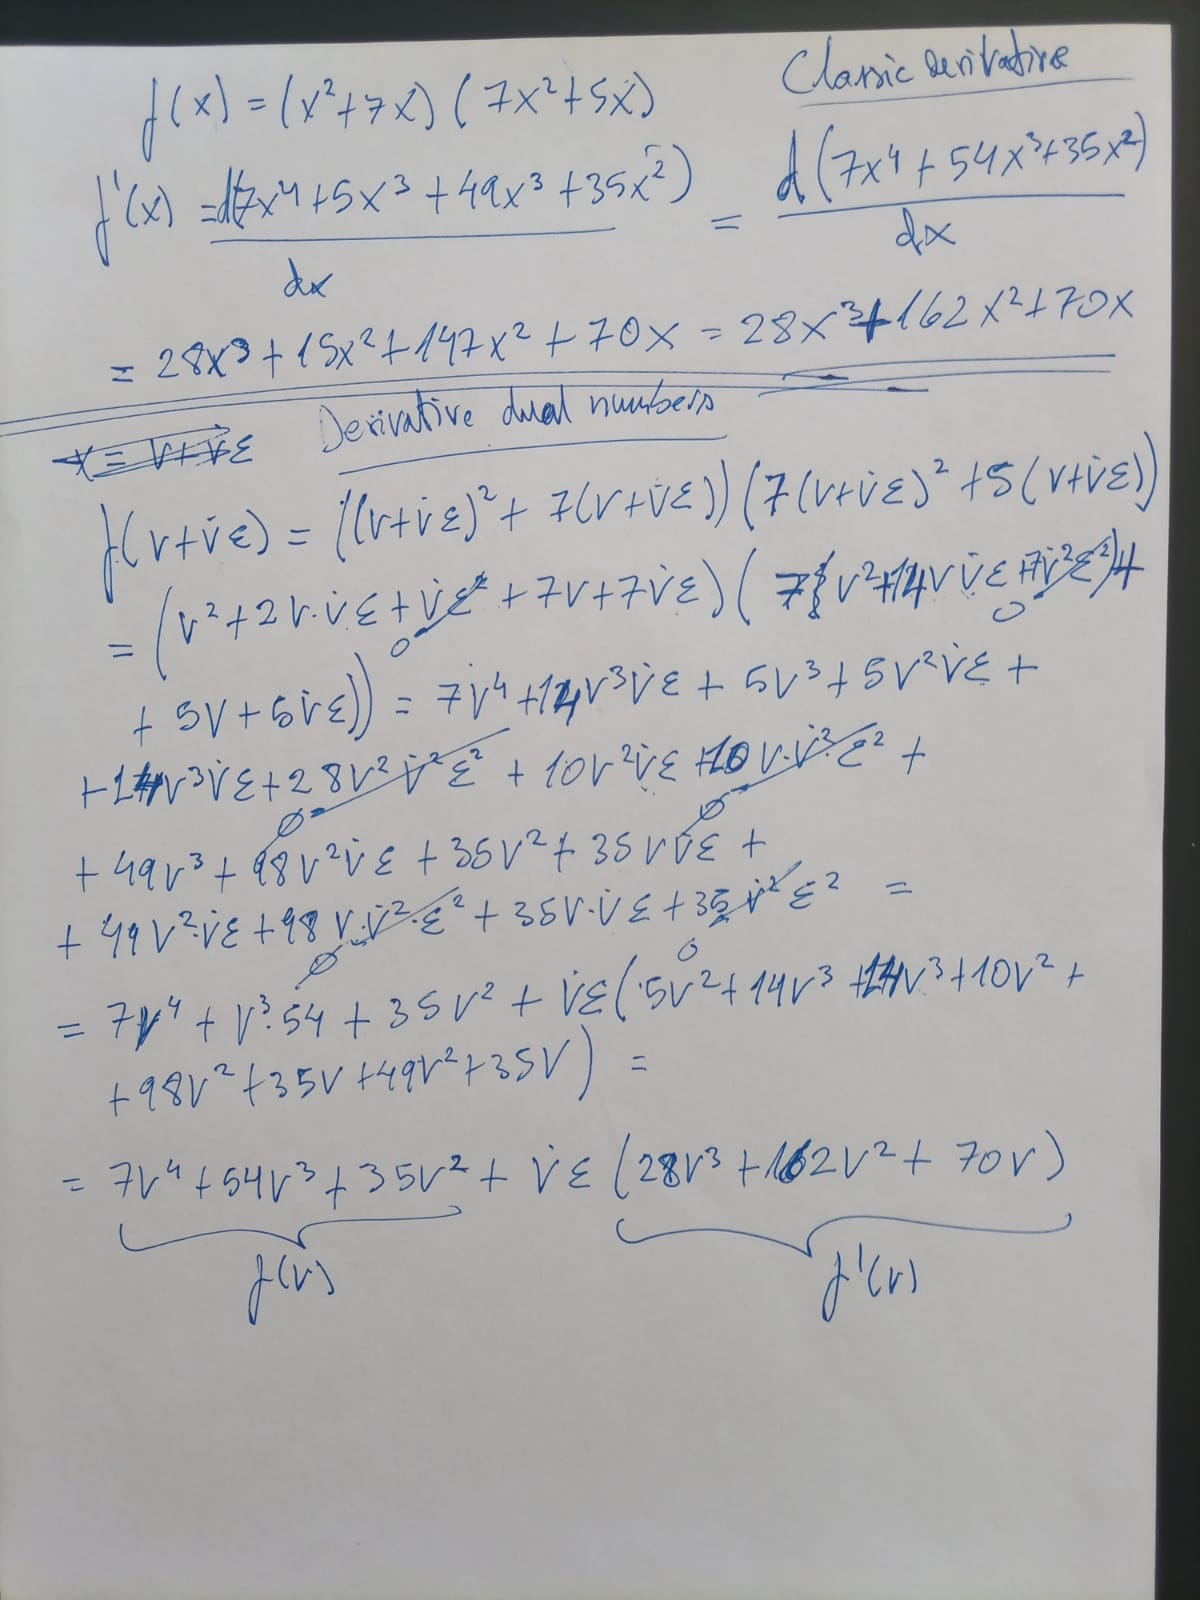 Classic derivative
f(x) = (x²+7x) (7x²+5x)
f'(x) = d(7x⁴+5x³+49x³+35x²)/dx = d(7x⁴+54x³+35x²)/dx
= 28x³+15x²+147x²+70x = 28x³+162x²+70x
Derivative dual numbers
x = v+v̇ε
f(v+v̇ε) = ((v+v̇ε)²+ 7(v+v̇ε)) (7(v+v̇ε)²+5(v+v̇ε))
= (v²+2v·v̇ε+v̇ε² 0 +7v+7v̇ε) (7v²+14vv̇ε+7v̇²ε² 0)+
+ 5v+5v̇ε)) = 7v⁴+14v³v̇ε + 5v³+5v²v̇ε +
+14v³v̇ε+28v²v̇²ε² 0 + 10v²v̇ε+10v·v̇²·ε² 0 +
+ 49v³+ 98v²v̇ε + 35v²+35vv̇ε +
+ 49v²·v̇ε+98v·v̇²·ε² 0 + 35v·v̇ε+35v̇²ε² 0 =
= 7v⁴ + v³·54 + 35v² + v̇ε(5v²+14v³+14v³+10v²+
+98v²+35v+49v²+35v) =
= 7v⁴+54v³+35v² + v̇ε (28v³+162v²+ 70v)
f(v) f'(v)